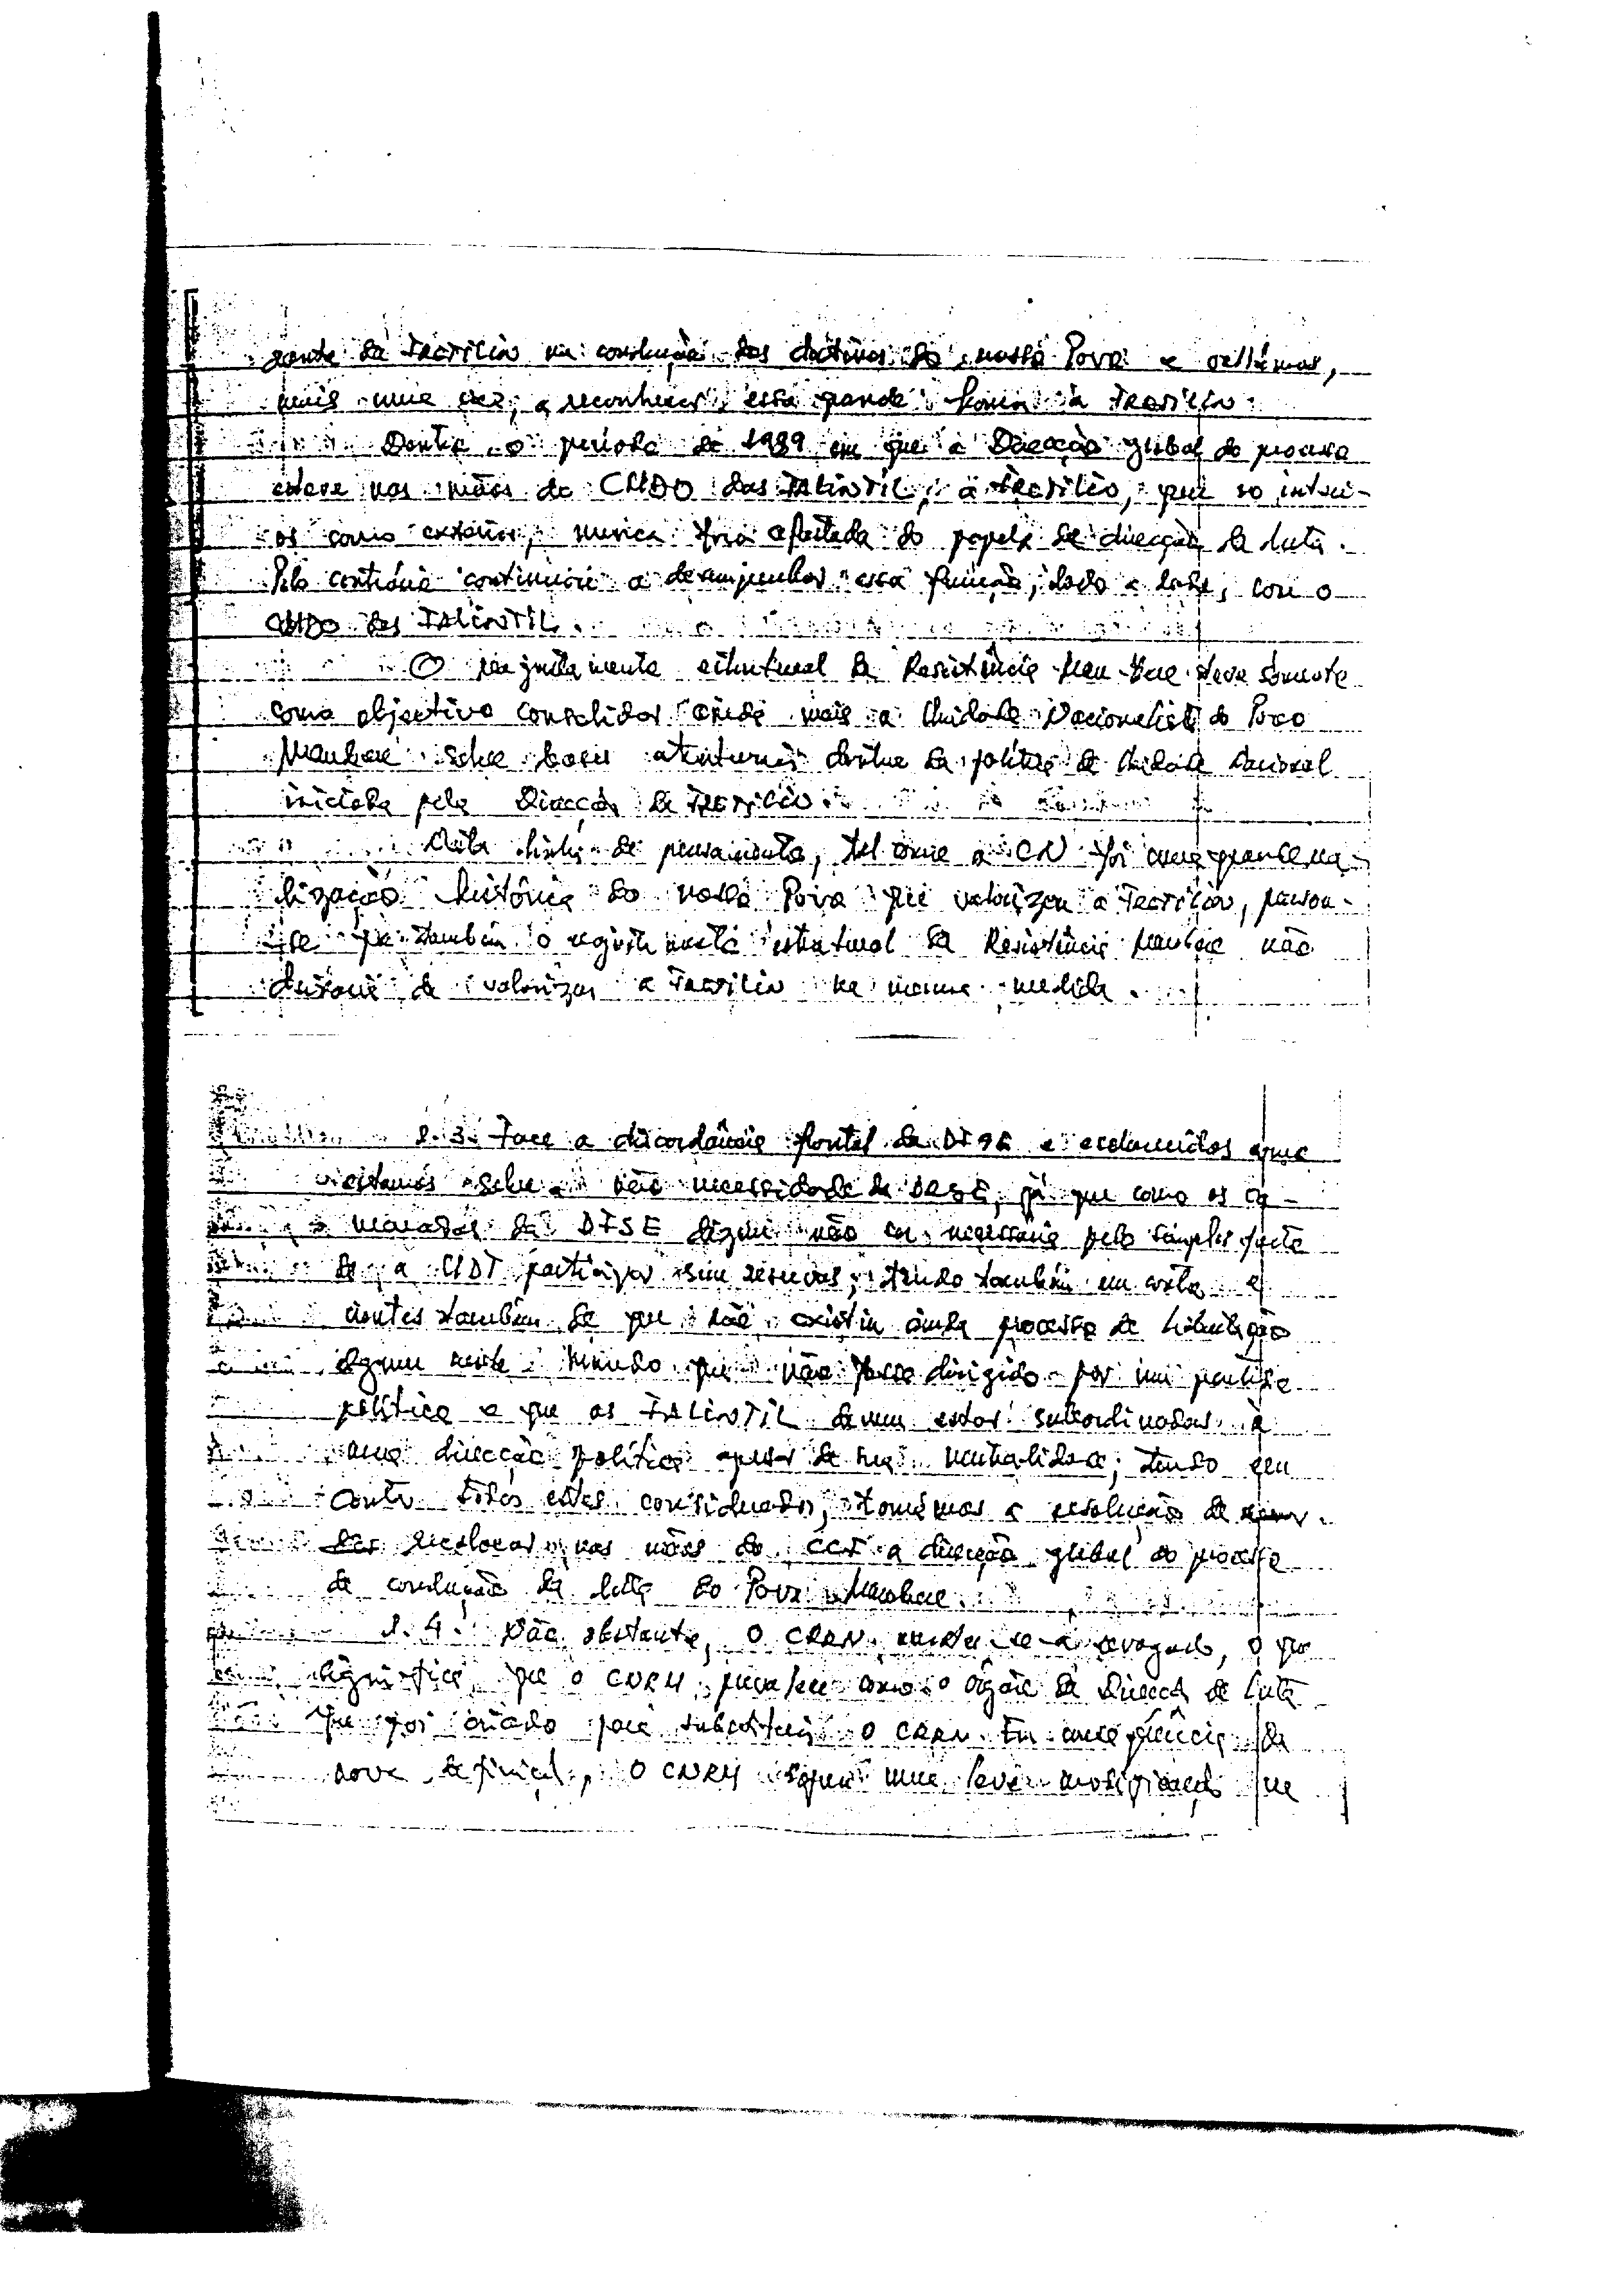 gente da FRETILIN na condução dos destinos do nosso Povo e voltámos,
mais uma vez, a reconhecer essa grande honra à FRETILIN.
Dentro o período de 1989 em que a Direcção global do processo
esteve nas mãos do CMDO das FALINTIL, a FRETILIN, quer no interi-
or como exterior, nunca fora afastada do papel de direcção da luta.
Pelo contrário continuou a desempenhar essa função, lado a lado, com o
CMDO das FALINTIL.
O reajustamento estrutural da Resistência Mau-Bere teve somente
como objectivo consolidar ainda mais a Unidade Nacionalista do Povo
Maubere sobre bases estruturais dentro da política de Unidade Nacional
iniciada pela Direcção da FRETILIN.
Nesta linha de pensamento, tal como a CN foi uma grande rea-
lização histórica do nosso Povo que valorizou a FRETILIN, pensou-
-se que também o reajustamento estrutural da Resistência Maubere não
deixou de valorizar a FRETILIN na mesma medida.
2.3. Face a discordância frontal da DFSE e esclarecidos
sobre a não necessidade da já que como os ca-
maradas da DFSE dizem não era necessária pelo simples facto
de a UDT participar sem reservas; tendo também em conta e
cientes também de que não existiu ainda processo de libertação
algum neste mundo que não fosse dirigido por um partido
político e que as FALINTIL devem estar subordinadas à
uma direcção política apesar da sua neutralidade; tendo em
conta todos estes considerados, tomámos a resolução de
recolocar nas mãos do CCF a direcção global do processo
de condução da luta do Povo Maubere.
2.4. Não obstante, o CRRN revogado, o que
significa que o CNRM permanece como o órgão de Direcção da luta
que foi criado para substituir o CRRN. Em consequência da
nova definição, o CNRM sofreu uma leve modificação na